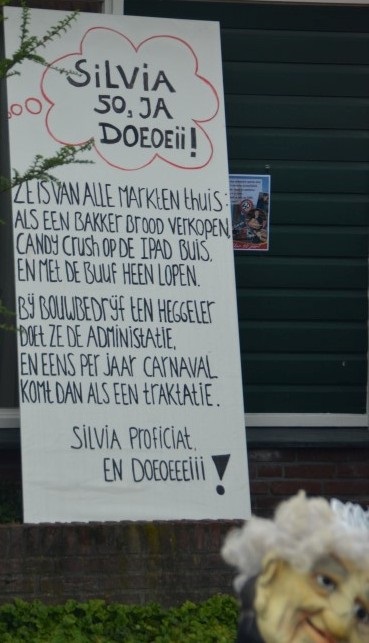 SiLViA
50, JA
DOEOEii!
ZE IS VAN ALLE MARKTEN thuis:
ALS EEN BAKKER BROOD VERKOPEN,
CANDY CRUSH OP DE IPAD BUIS.
EN MET DE BUUF HEEN LOPEN.
Bij BOUWBEDRijf TEN HEGGELER
DOET ZE DE ADMINISTATIE,
EN EENS PER JAAR CARNAVAL
KOMT DAN ALS EEN TRAKTATIE.
SiLViA PROFiCiAT,
EN DOEOEEEiii!